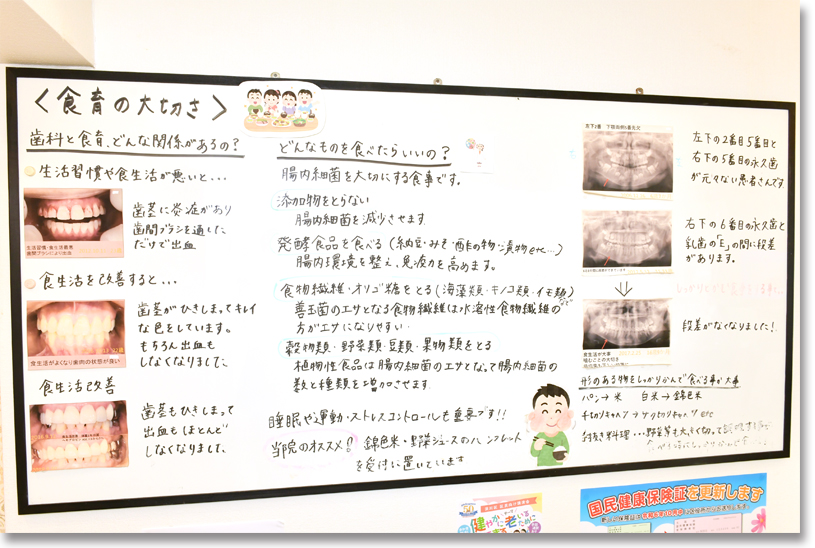 〈食育の大切さ〉
歯科と食育、どんな関係があるの?
生活習慣や食生活が悪いと…
歯茎に炎症があり
歯間ブラシを通した
だけで出血
生活習慣・食生活最悪
歯間ブラシにより出血
食生活を改善すると…
歯茎がひきしまってキレイ
な色をしています。
もちろん出血も
しなくなりました、
食生活がよくなり歯肉の状態が良い
食生活改善
歯茎もひきしまって
出血もほとんど
しなくなりました、
どんなものを食べたらいいの?
腸内細菌を大切にする食事です。
添加物をとらない
腸内細菌を減少させます
発酵食品を食べる(納豆・みそ・酢の物・漬物etc…)
腸内環境を整え、免疫力を高めます。
食物繊維・オリゴ糖をとる(海藻類・キノコ類・イモ類)など
善玉菌のエサとなる食物繊維は水溶性食物繊維の
方がエサになりやすい・
穀物類・野菜類・豆類・果物類をとる
植物性食品は腸内細菌のエサとなって腸内細菌の
数と種類を増加させます
睡眠や運動・ストレスコントロールも重要です!!
当院のオススメ!! 錦色米・野菜ジュースのパンフレット
を受付に置いています
左下の2番目5番目と
右下の5番目の永久歯
が元々ない患者さんです
右下の6番目の永久歯と
乳歯の「E」の間に段差
があります。
段差がなくなりました!
食生活が大事
噛むことの大切さ
形のある物をしっかりかんで食べる事が大事
パン→米 白米→錦色米
千切りキャベツ→ザク切りキャベツetc
国民健康保険証を更新します
健やかに老いるために